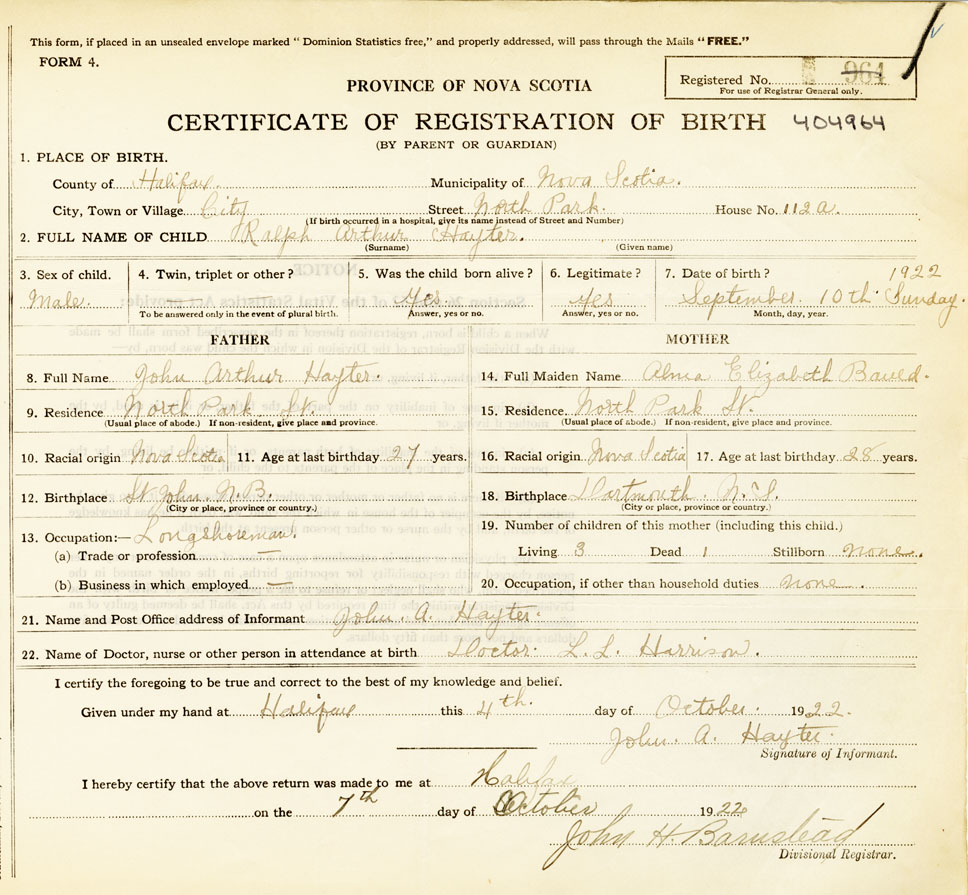 This form, if placed in an unsealed envelope marked "Dominion Statistics free," and properly addressed, will pass through the Mails "FREE."
FORM 4.
Registered No. 964
For use of Registrar General only.
PROVINCE OF NOVA SCOTIA
CERTIFICATE OF REGISTRATION OF BIRTH 404964
(BY PARENT OR GUARDIAN)
1. PLACE OF BIRTH.
County of Halifax. Municipality of Nova Scotia.
City, Town or Village City Street North Park. House No. 112A.
(If birth occurred in a hospital, give its name instead of Street and Number)
2. FULL NAME OF CHILD Ralph Arthur Hayter.
(Surname) (Given name)
3. Sex of child. 4. Twin, triplet or other? 5. Was the child born alive? 6. Legitimate? 7. Date of birth? 1922
Male. Yes Yes September. 10th. Sunday.
To be answered only in the event of plural birth. Answer, yes or no. Answer, yes or no. Month, day, year.
FATHER MOTHER
8. Full Name John Arthur Hayter. 14. Full Maiden Name Alma Elizabeth Bauld.
9. Residence North Park St. 15. Residence. North Park St.
(Usual place of abode.) If non-resident, give place and province. (Usual place of abode.) If non-resident, give place and province.
10. Racial origin Nova Scotia 11. Age at last birthday 27 years. 16. Racial origin Nova Scotia 17. Age at last birthday 28 years.
12. Birthplace St John. N.B. 18. Birthplace Dartmouth. N.S.
(City or place, province or country.) (City or place, province or country.)
13. Occupation:— Longshoreman. 19. Number of children of this mother (including this child.)
(a) Trade or profession — Living 3 Dead 1 Stillborn none.
(b) Business in which employed — 20. Occupation, if other than household duties none.
21. Name and Post Office address of Informant John. A. Hayter.
22. Name of Doctor, nurse or other person in attendance at birth Doctor. L. L. Harrison.
I certify the foregoing to be true and correct to the best of my knowledge and belief.
Given under my hand at Halifax this 4th. day of October. 1922.
John. A. Hayter.
Signature of Informant.
I hereby certify that the above return was made to me at Halifax
on the 7th day of October 1922
John H. Barnstead
Divisional Registrar.